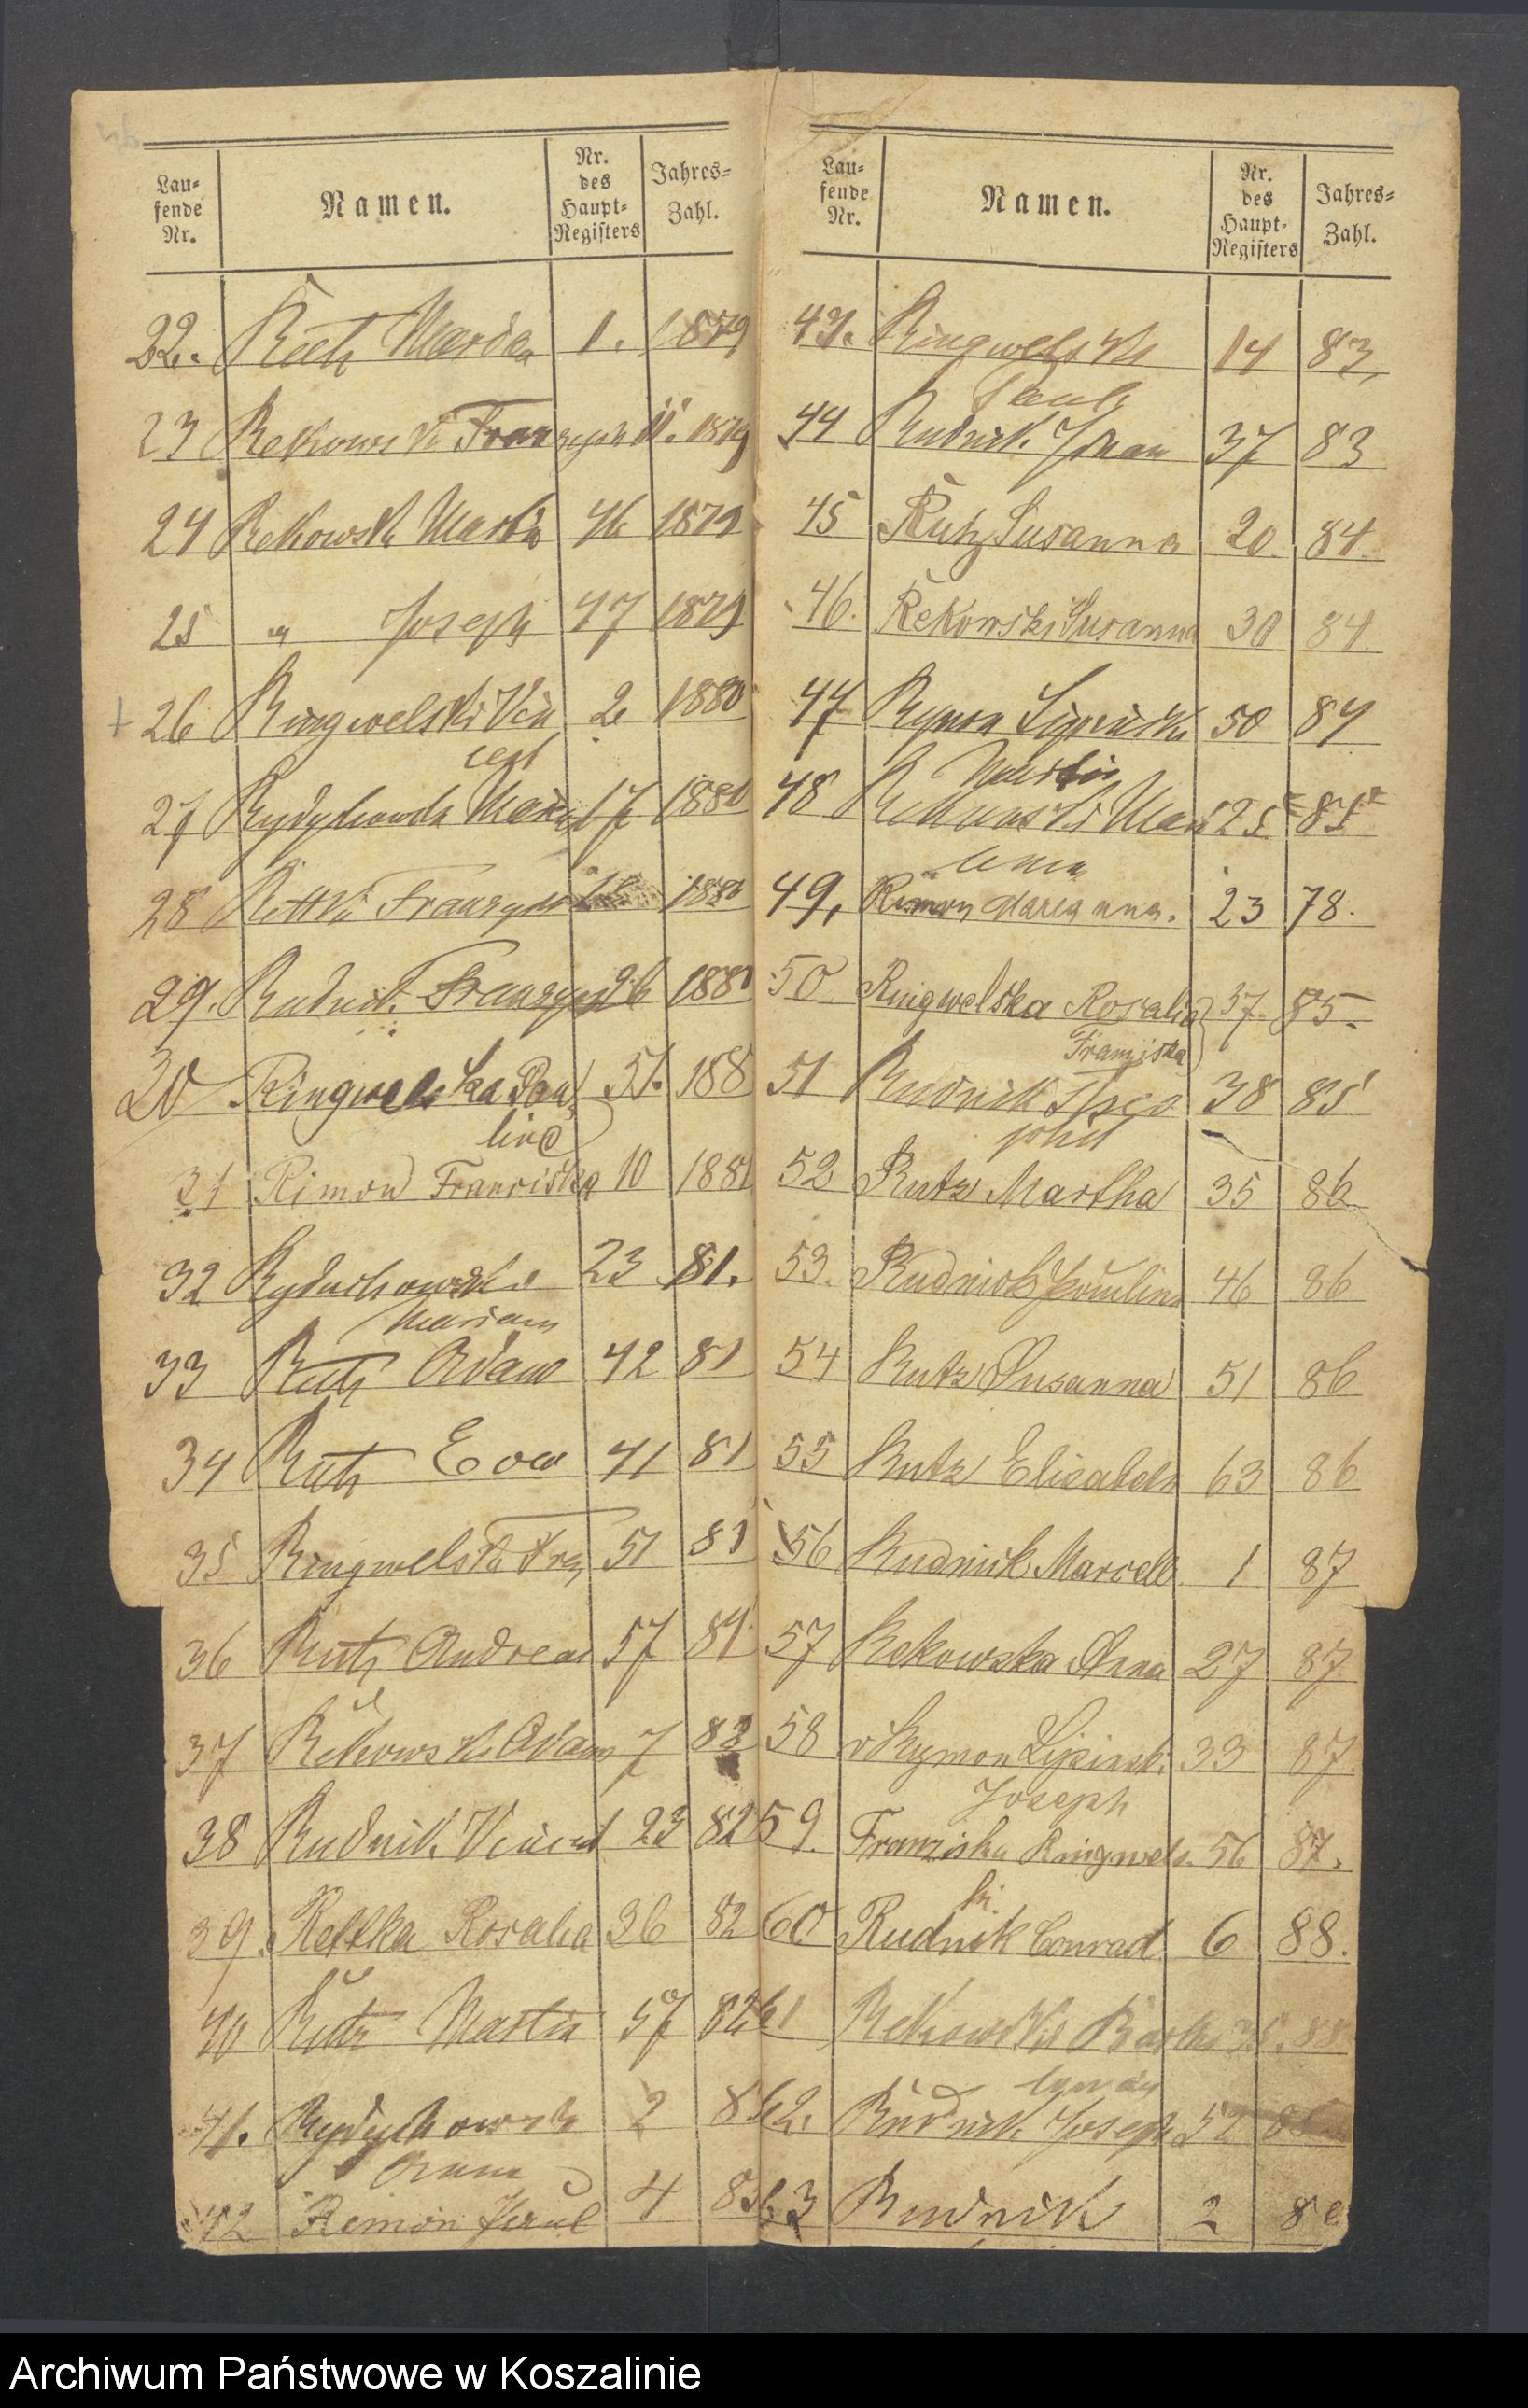 Lau-
fende
Nr.
Namen.
Nr.
des
Haupt-
Registers
Jahres-
Zahl.
22. Rutz Maria 1. 1879
23 Rekowski Franz 11. 1879
24 Rekowski Martin 46 1879
25 " Joseph 47 1879
26 Ringwelski Vin 2 1880
cent
27 Rydychowski 17 1880
28 1880
29. Rudnik 26 1880
30 Ringwelska Pau 51. 188
line
31 Rimon Franciska 10 1881
32 23 81.
33 Rutz Adam 42 81
34 Rutz Eva 41 81
35 Ringwelski Frz 51 81
36 Rutz Andreas 57 81
37 Rekowski Adam 7 82
38 Rudnik Vincent 23 82
39. Rettka Rosalia 36 82
40 Rutz Martin 57 82
41. Rydychowski 2 83
Anna
42 Remon Paul 4 83
Lau-
fende
Nr.
Namen.
Nr.
des
Haupt-
Registers
Jahres-
Zahl.
43. Ringwelski 14 83
Paul
44 Rudnik Johan 37 83
45 Rutz Susanna 20. 84.
46. Rekowski Susanna 30 84.
47 Rymon Lipinski 50 84
Martin
48 Rekowski 25 85
49, Rimon Marianna. 23 78.
50 Ringwelska Rosalia 37. 85.
Franziska
51 Rudnik Theo 38 85
phil
52 Rutz Martha 35 86
53. Rudnick Paulina 46 86
54 Rutz Susanna 51 86
55 Rutz Elisabeth 63 86
56 Rudnik Marcell 1 87
57 Rekowska Anna 27 87.
58 v Rymon Lipinski 33 87.
Joseph
59. Franziska Ringwels 56 87.
ki
60 Rudnik Conrad 6 88.
61 Rekowski 35. 88
62. Rudnik Joseph 52
63 Rudnik 2
Archiwum Państwowe w Koszalinie